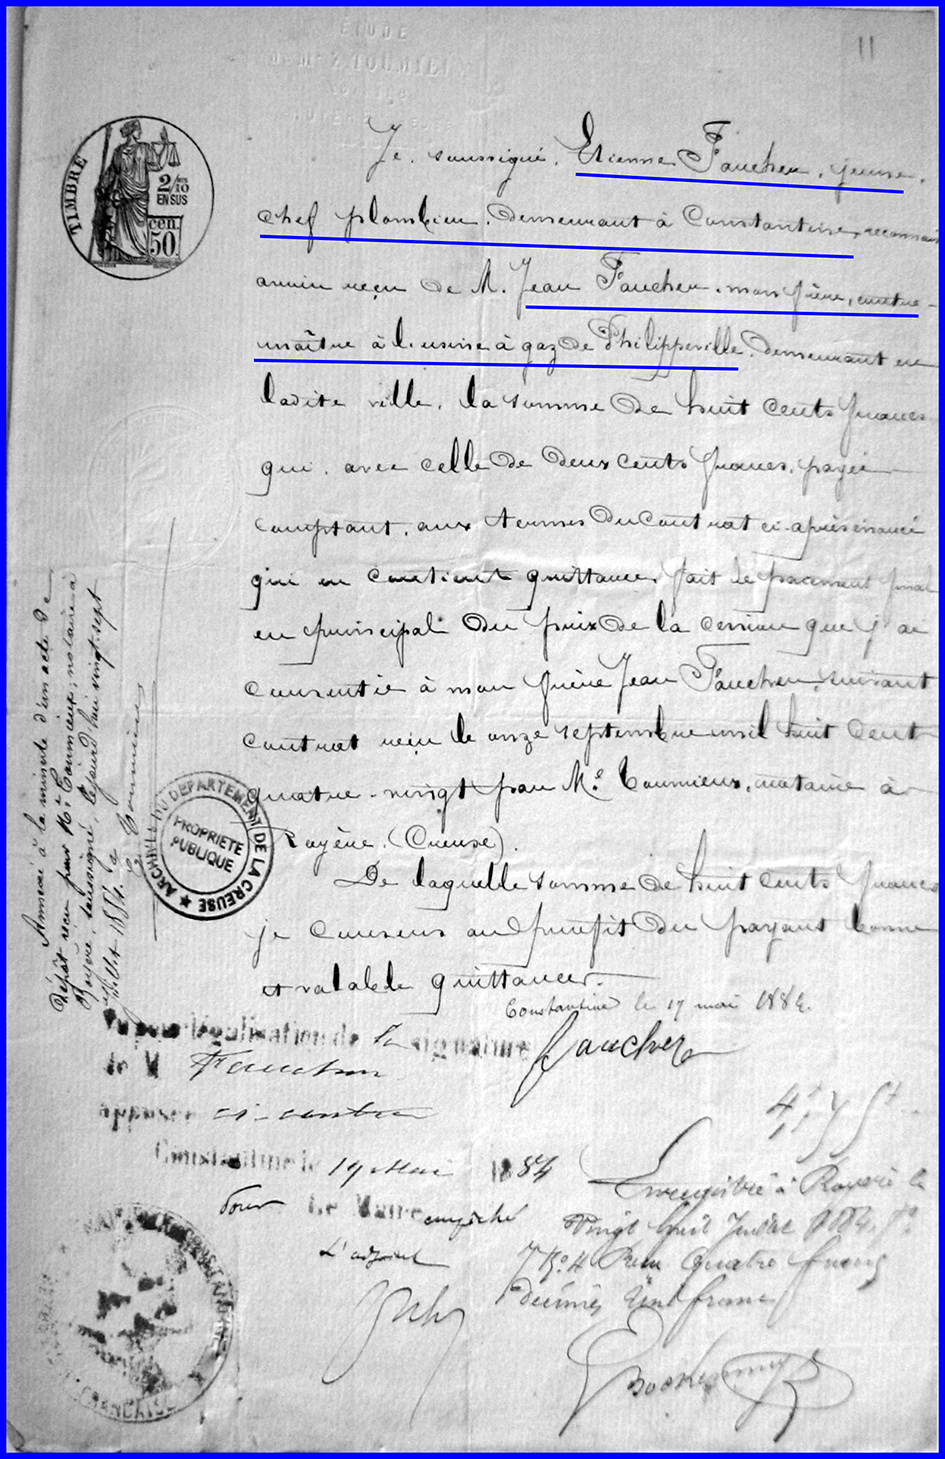 ETUDE
11
TIMBRE
2/10
EN SUS
50 cen.
Je, soussigné, Etienne Faucher, jeune,
chef plombier, demeurant à Constantine, reconnais
avoir reçu de M. Jean Faucher, mon frère, contre-
maître à l'usine à gaz de Philippeville, demeurant en
ladite ville, la somme de huit cents francs
qui, avec celle de deux cents francs, payée
comptant, aux termes du contrat ci-après énoncé
qui en contient quittance, fait le paiement final
en principal du prix de la cession que j'ai
consentie à mon frère Jean Faucher, suivant
contrat reçu le onze septembre mil huit cent
quatre-vingt par Me Coumieux, notaire à
Royère (Creuse).
De laquelle somme de huit cents francs
je consens au profit du payant bonne
et valable quittance.
Constantine le 17 mai 1884.
Faucher
Annexé à la minute d'un acte de
dépôt reçu par Me Coumieux, notaire à
Royère, soussigné, cejourd'hui vingt-sept
juillet 1884.
ARCHIVES DU DEPARTEMENT DE LA CREUSE
PROPRIETE
PUBLIQUE
Vu pour légalisation de la signature
de M Faucher
apposée ci-contre
Constantine le 19 Mai 1884
Pour Le Maire empêché
L'adjoint
Enregistré à Royère le
Vingt huit Juillet 1884, fo
7 Ro 4 Reçu quatre francs
décimes Un franc
FRANÇAISE